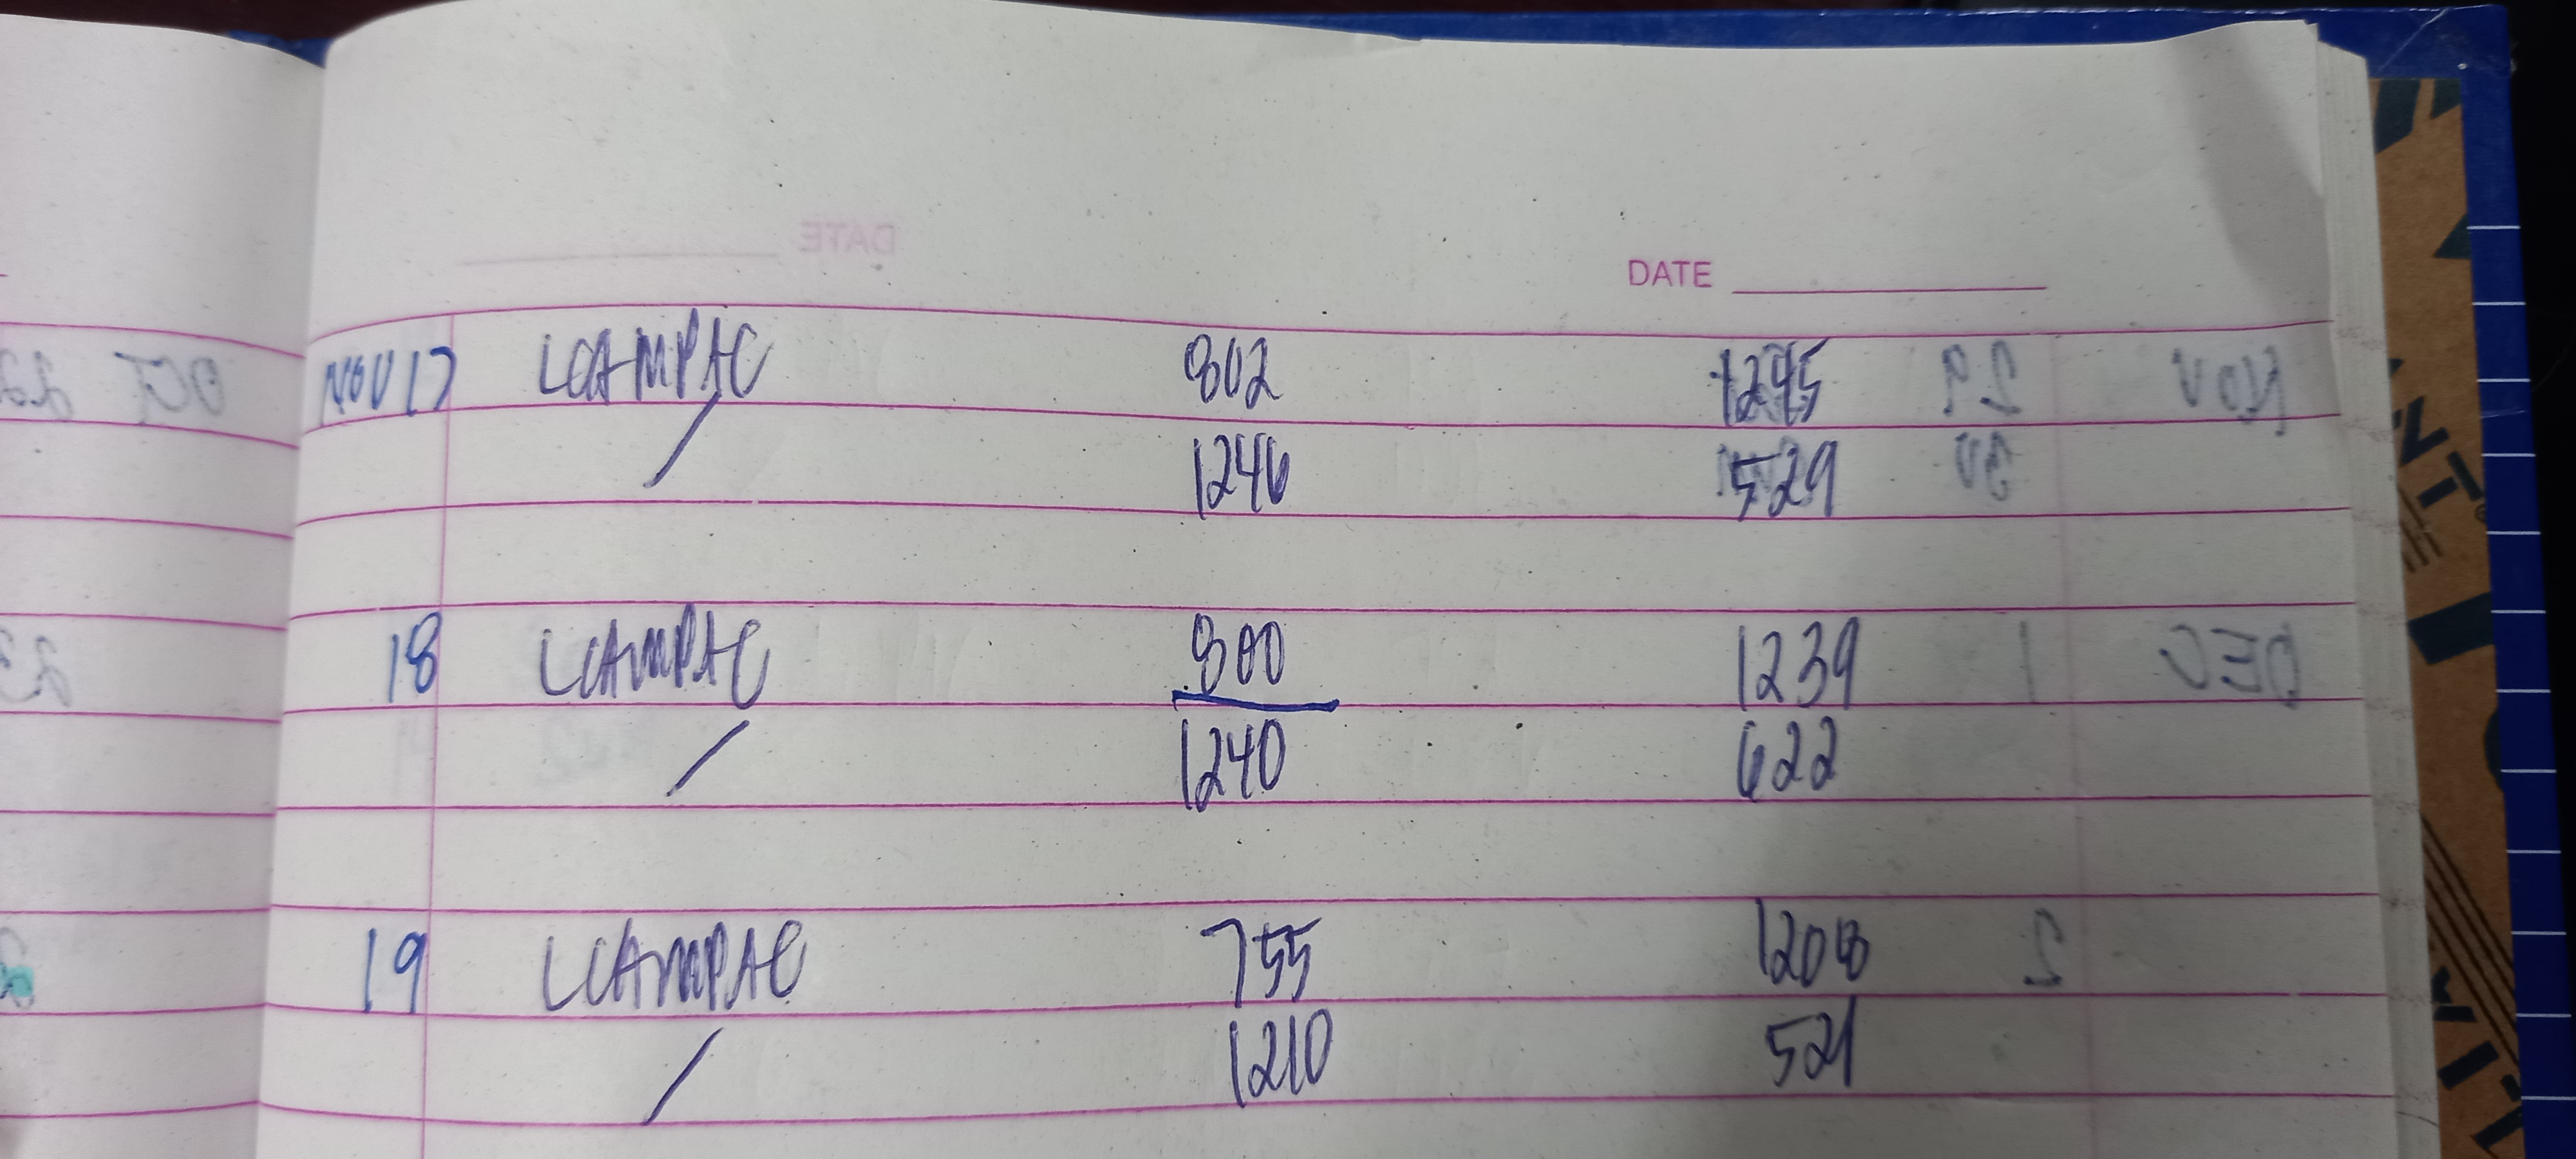 DATE
NOV 17 LCAMPAC 802 1245
/ 1246 529
18 LCAMPAC 800 1239
/ 1240 622
19 LCAMPAC 755 1208
/ 1210 521